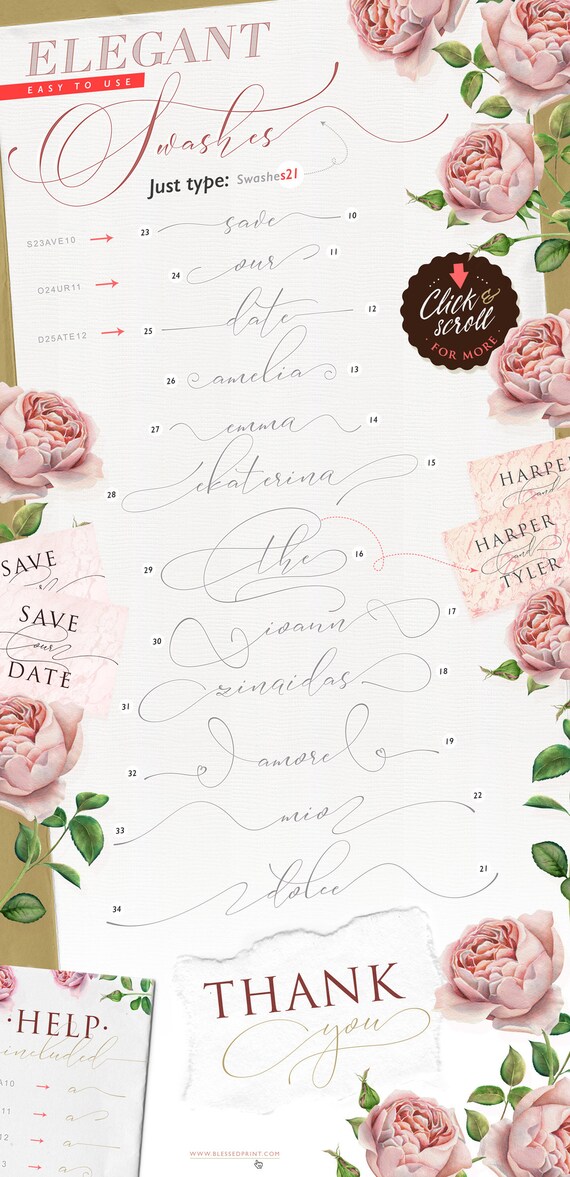 ELEGANT
EASY TO USE
Swashes
Just type: Swashes21
S23AVE10
23 save 10
24 our 11
O24UR11
D25ATE12
25 date 12
Click &
scroll
· FOR MORE ·
26 amelia 13
27 emma 14
28 ekaterina 15
HARPER
and
HARPER
and
TYLER
29 the 16
SAVE
SAVE
our
DATE
30 ioann 17
31 zinaidas 18
32 amore 19
33 mio 22
34 dolce 21
THANK
you
·HELP·
included
A10 a
11 a
12 a
3 a
WWW.BLESSEDPRINT.COM